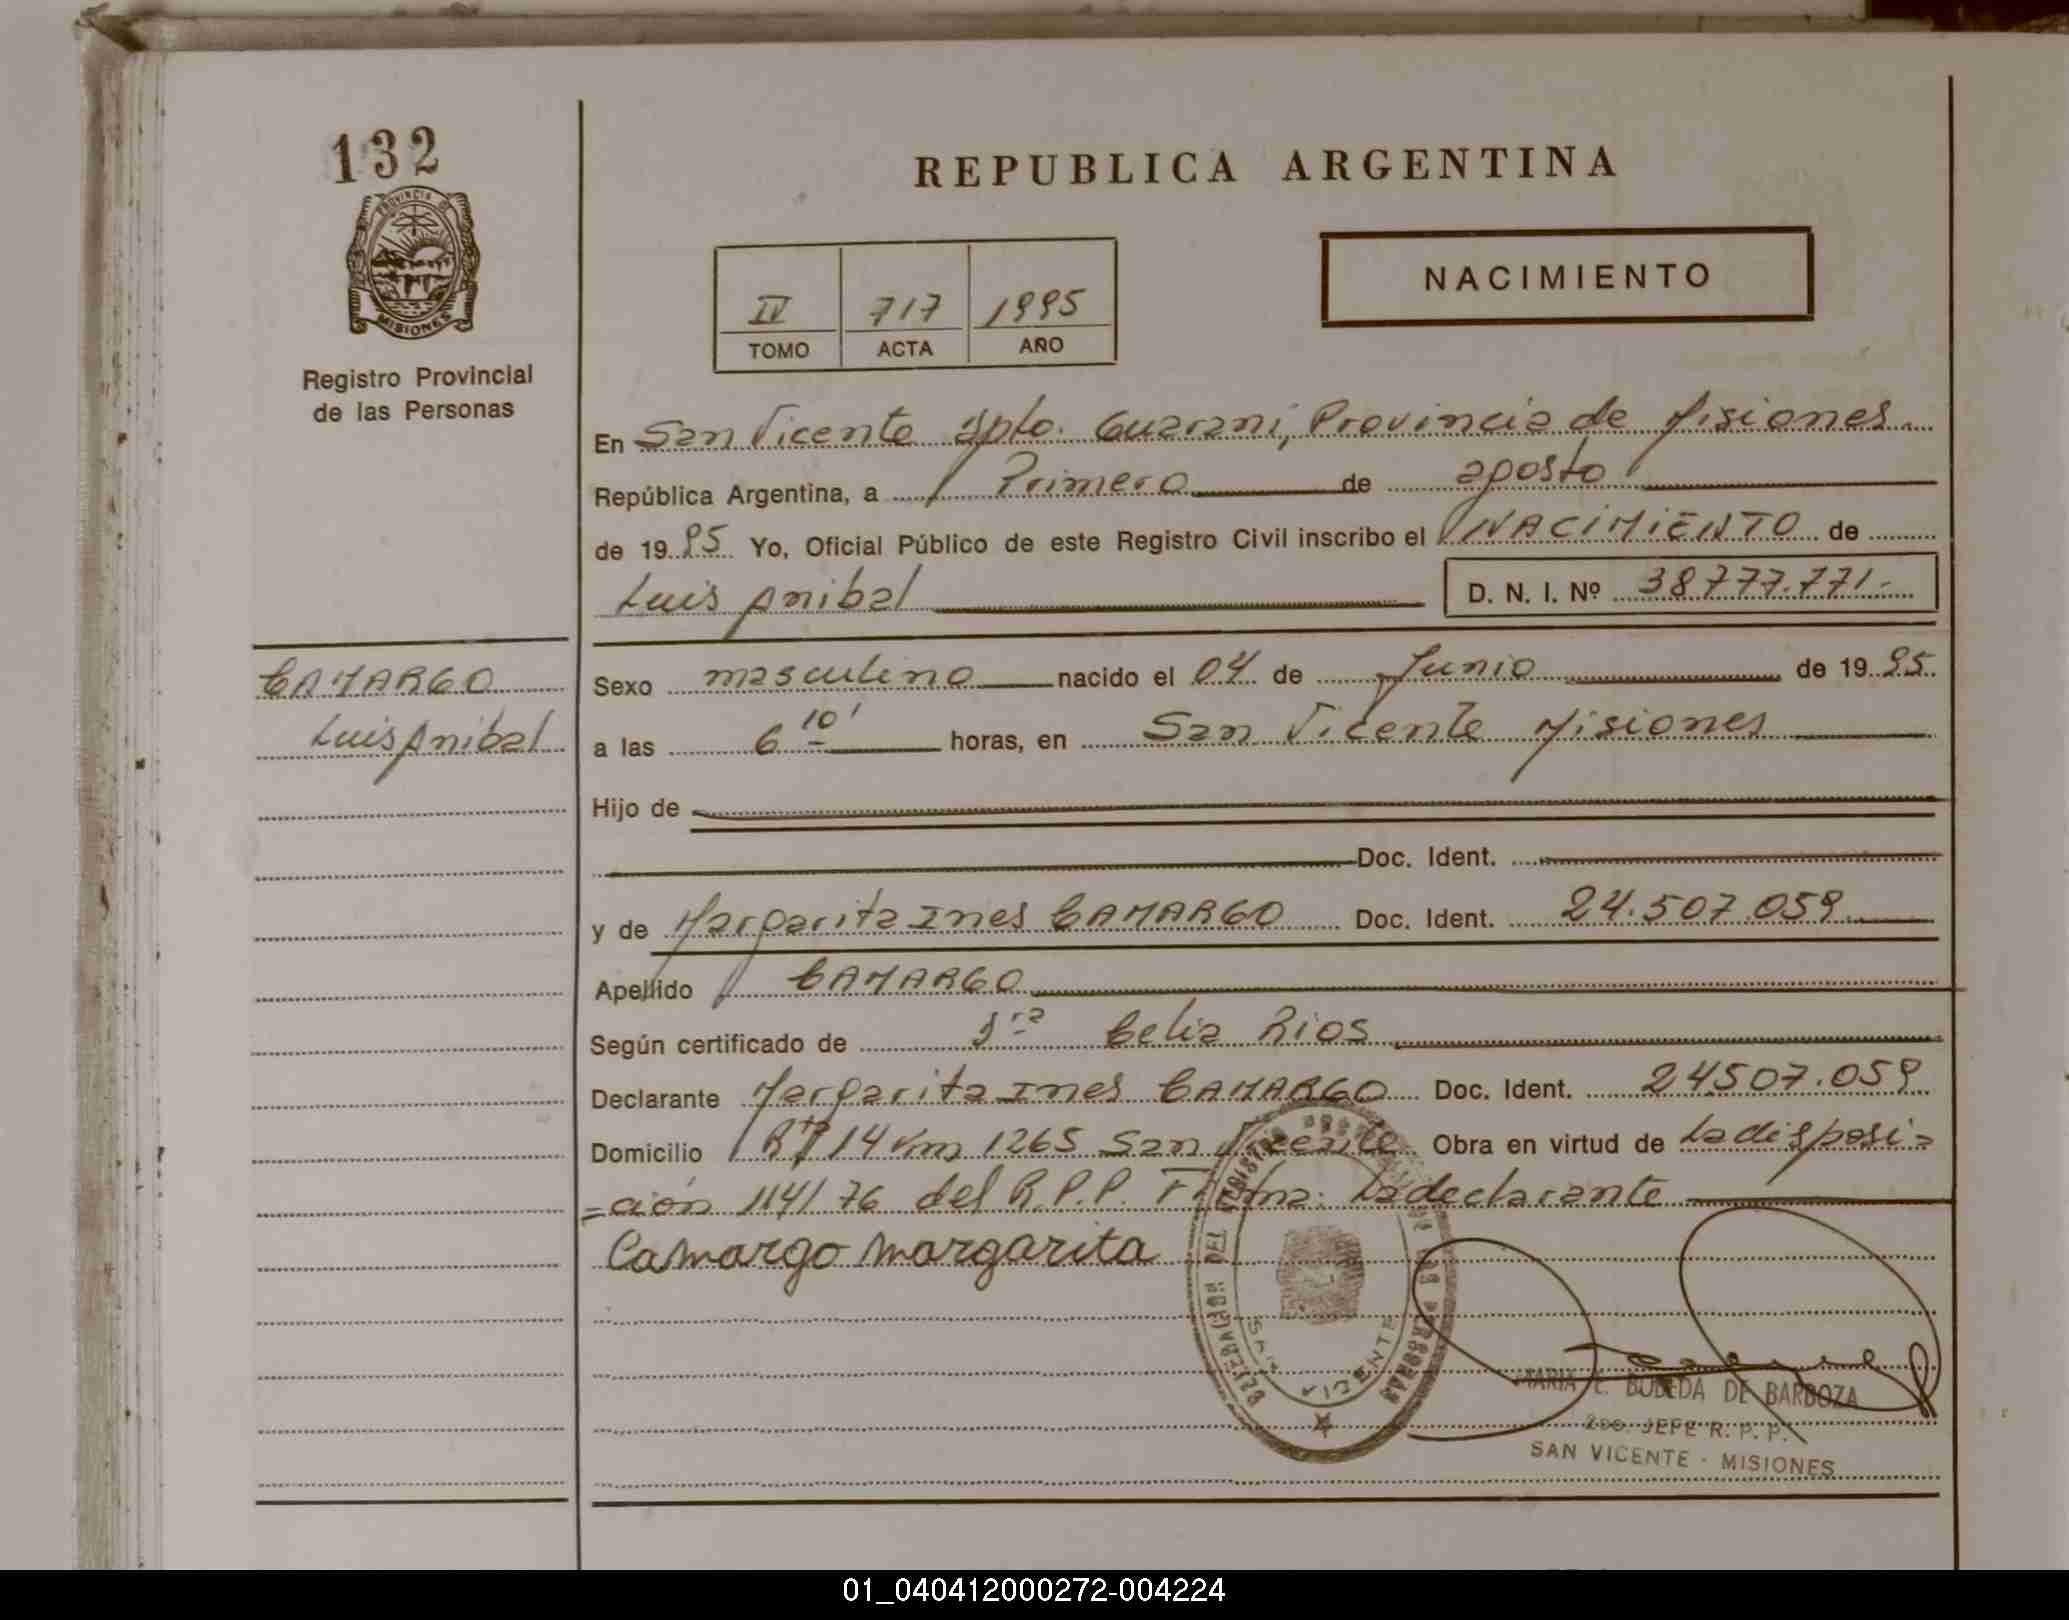 132
REPUBLICA ARGENTINA
PROVINCIA DE
MISIONES
Registro Provincial
de las Personas
NACIMIENTO
IV 717 1995
TOMO ACTA AÑO
En San Vicente Dpto. Guarani, Provincia de Misiones.
República Argentina, a Primero de agosto
de 1995 Yo, Oficial Público de este Registro Civil inscribo el NACIMIENTO de
Luis Anibal D. N. I. Nº 38777.771.-
CAMARGO
Luis Anibal
Sexo masculino nacido el 04 de Junio de 1995.
a las 6 10' horas, en San Vicente Misiones
Hijo de
Doc. Ident.
y de Margarita Ines CAMARGO Doc. Ident. 24.507.059
Apellido CAMARGO
Según certificado de Dra Celia Rios
Declarante Margarita Ines CAMARGO Doc. Ident. 24507.059
Domicilio Rta 14 Km 1265 San Vicente Obra en virtud de La disposi=
=ción 114/76 del R.P.P. Firma: La declarante
Camargo Margarita
DEL REGISTRO
DE LAS PERSONAS
SAN VICENTE
MARIA E. BOBEDA DE BARBOZA
2DO. JEFE R. P. P.
SAN VICENTE - MISIONES
01_040412000272-004224